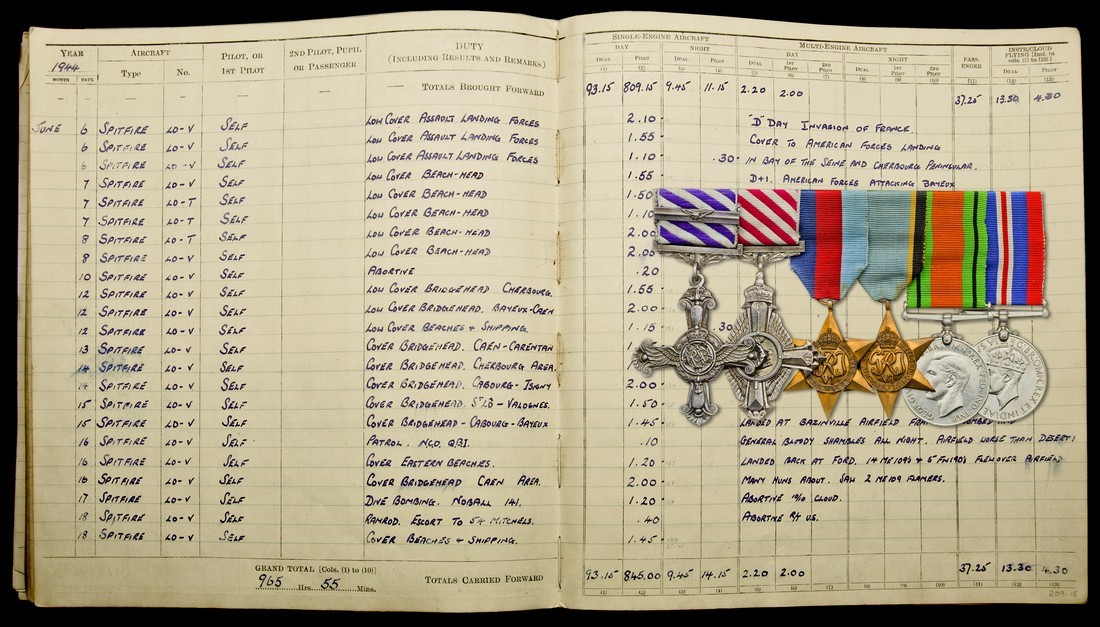 YEAR AIRCRAFT PILOT, OR 1ST PILOT 2ND PILOT, PUPIL OR PASSENGER DUTY (INCLUDING RESULTS AND REMARKS)
1944
MONTH DATE Type No.
— — — — — — TOTALS BROUGHT FORWARD
JUNE 6 SPITFIRE LO-V SELF LOW COVER ASSAULT LANDING FORCES
6 SPITFIRE LO-V SELF LOW COVER ASSAULT LANDING FORCES
6 SPITFIRE LO-V SELF LOW COVER ASSAULT LANDING FORCES
7 SPITFIRE LO-V SELF LOW COVER BEACH-HEAD
7 SPITFIRE LO-T SELF LOW COVER BEACH-HEAD
7 SPITFIRE LO-T SELF LOW COVER BEACH-HEAD
8 SPITFIRE LO-T SELF LOW COVER BEACH-HEAD
8 SPITFIRE LO-V SELF LOW COVER BEACH-HEAD
10 SPITFIRE LO-V SELF ABORTIVE
12 SPITFIRE LO-V SELF LOW COVER BRIDGEHEAD CHERBOURG.
12 SPITFIRE LO-V SELF LOW COVER BRIDGEHEAD. BAYEUX-CAEN
12 SPITFIRE LO-V SELF LOW COVER BEACHES & SHIPPING.
13 SPITFIRE LO-V SELF COVER BRIDGEHEAD. CAEN-CARENTAN
14 SPITFIRE LO-V SELF COVER BRIDGEHEAD. CHERBOURG AREA.
14 SPITFIRE LO-V SELF COVER BRIDGEHEAD. CABOURG-ISIGNY
15 SPITFIRE LO-V SELF COVER BRIDGEHEAD. ST LÔ - VALOGNES.
15 SPITFIRE LO-V SELF COVER BRIDGEHEAD-CABOURG-BAYEUX
16 SPITFIRE LO-V SELF PATROL. N.C.O. QBI.
16 SPITFIRE LO-V SELF COVER EASTERN BEACHES.
16 SPITFIRE LO-V SELF COVER BRIDGEHEAD CAEN AREA.
17 SPITFIRE LO-V SELF DIVE BOMBING. NOBALL 141.
18 SPITFIRE LO-V SELF RAMROD. ESCORT TO 54 MITCHELS.
18 SPITFIRE LO-V SELF COVER BEACHES & SHIPPING.
GRAND TOTAL [Cols. (1) to (10)]
965 Hrs. 55 Mins.
TOTALS CARRIED FORWARD
SINGLE-ENGINE AIRCRAFT MULTI-ENGINE AIRCRAFT PASSENGER INSTR/CLOUD FLYING [Incl. in cols. (1) to (10)]
DAY NIGHT DAY NIGHT
DUAL PILOT DUAL PILOT DUAL 1ST PILOT 2ND PILOT DUAL 1ST PILOT 2ND PILOT DUAL PILOT
(1) (2) (3) (4) (5) (6) (7) (8) (9) (10) (11) (12) (13)
93.15 809.15 9.45 11.15 2.20 2.00 37.25 13.30 4.30
2.10 "D" DAY INVASION OF FRANCE.
1.55 COVER TO AMERICAN FORCES LANDING
1.10 .30 IN BAY OF THE SEINE AND CHERBOURG PENINSULAR.
1.55 D+1. AMERICAN FORCES ATTACKING BAYEUX
1.50
1.10
2.00
2.00
.20
1.55
2.00
1.15 .30
2.00
1.50
1.45 LANDED AT BAZINVILLE AIRFIELD
.10 GENERAL BLOODY SHAMBLES ALL NIGHT. AIRFIELD WORSE THAN DESERT!
1.20 LANDED BACK AT FORD. 14 ME109'S & 5 FW190'S FLEW OVER AIRFIELD
2.00 MANY HUNS ABOUT. SAW 2 ME109 FLAMERS.
1.20 ABORTIVE 10/10 CLOUD.
.40 ABORTIVE R/T U.S.
1.45
93.15 845.00 9.45 14.15 2.20 2.00 37.25 13.30 4.30
(1) (2) (3) (4) (5) (6) (7) (8) (9) (10) (11) (12) (13)